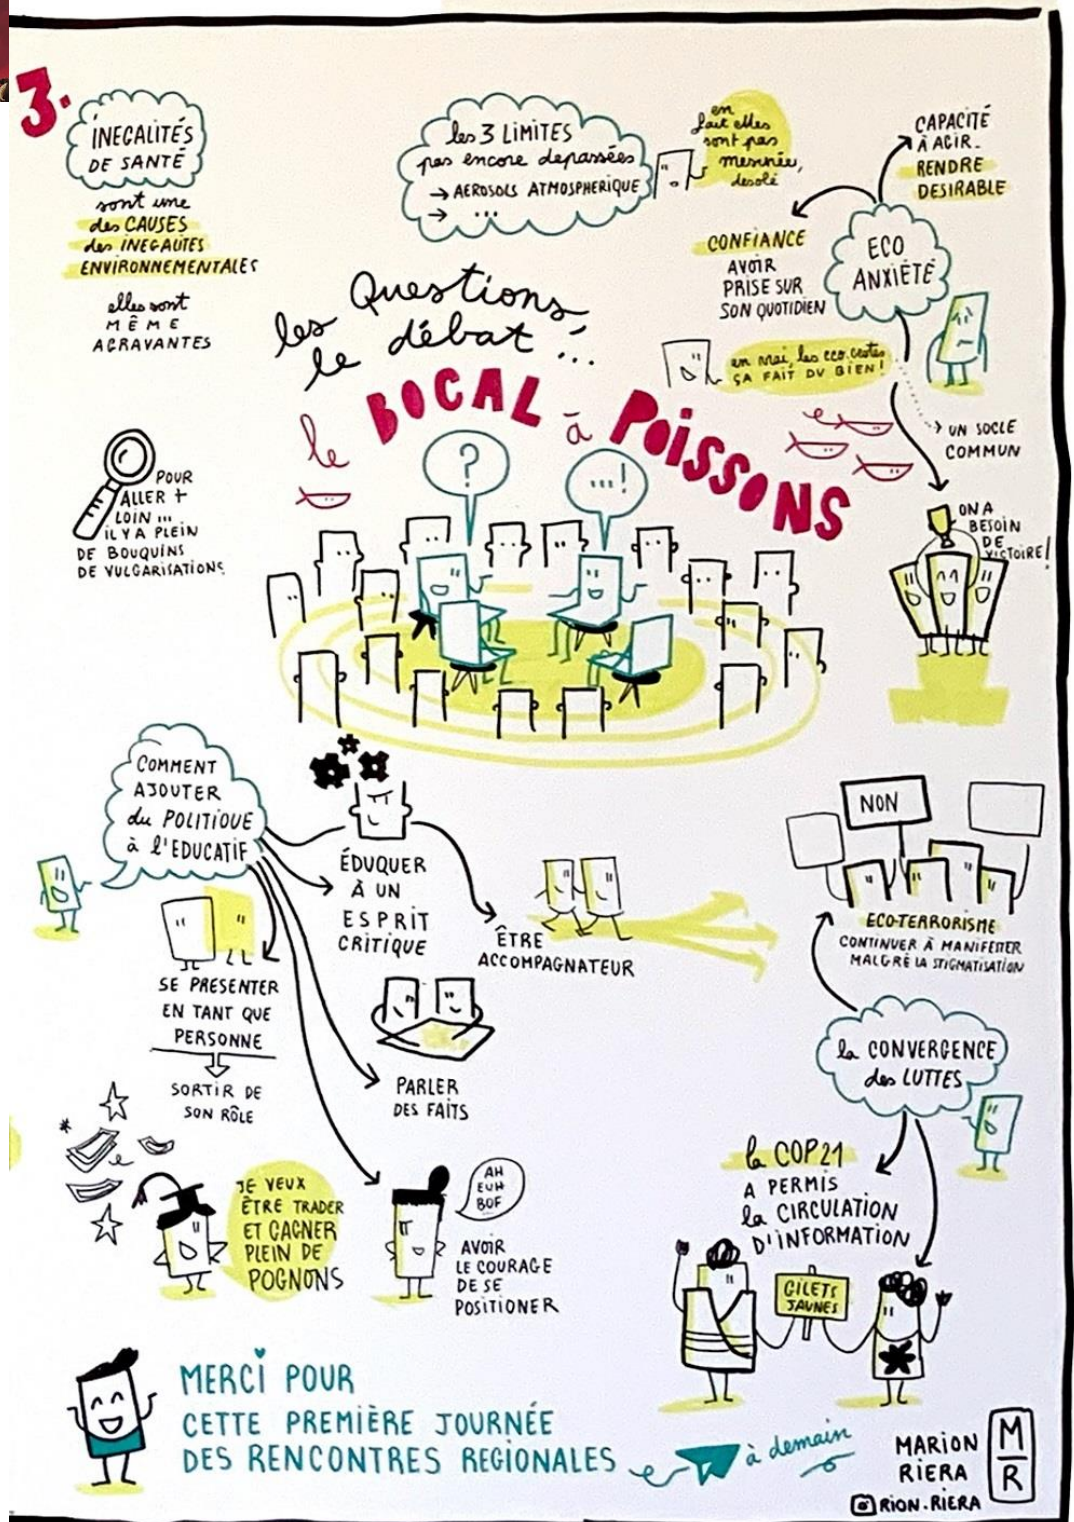 3.
INEGALITÉS
DE SANTÉ
sont une
des CAUSES
des INEGALITES
ENVIRONNEMENTALES
elles sont
MÊME
AGRAVANTES
les 3 LIMITES
pas encore depassées
→ AEROSOLS ATMOSPHERIQUE
→ ...
en
fait elles
sont pas
mesurée,
desolé
CAPACITÉ
À AGIR.
RENDRE
DESIRABLE
CONFIANCE
AVOIR
PRISE SUR
SON QUOTIDIEN
ECO
ANXIÉTÉ
en vrai, les eco.gestes
ÇA FAIT DU BIEN!
→ UN SOCLE
COMMUN
ON A
BESOIN
DE
VICTOIRE!
les Questions,
le débat...
le BOCAL à POISSONS
?
...!
POUR
ALLER +
LOIN ...
IL Y A PLEIN
DE BOUQUINS
DE VULGARISATIONS
COMMENT
AJOUTER
du POLITIQUE
à l'EDUCATIF
ÉDUQUER
À UN
ESPRIT
CRITIQUE
ÊTRE
ACCOMPAGNATEUR
SE PRESENTER
EN TANT QUE
PERSONNE
SORTIR DE
SON RÔLE
PARLER
DES FAITS
JE VEUX
ÊTRE TRADER
ET GAGNER
PLEIN DE
POGNONS
AH
EUH
BOF
AVOIR
LE COURAGE
DE SE
POSITIONER
NON
ECO-TERRORISME
CONTINUER À MANIFESTER
MALGRÉ LA STIGMATISATION
la CONVERGENCE
des LUTTES
la COP21
A PERMIS
la CIRCULATION
D'INFORMATION
GILETS
JAUNES
MERCI POUR
CETTE PREMIÈRE JOURNÉE
DES RENCONTRES REGIONALES
à demain
MARION
RIERA
M
R
RION.RIERA